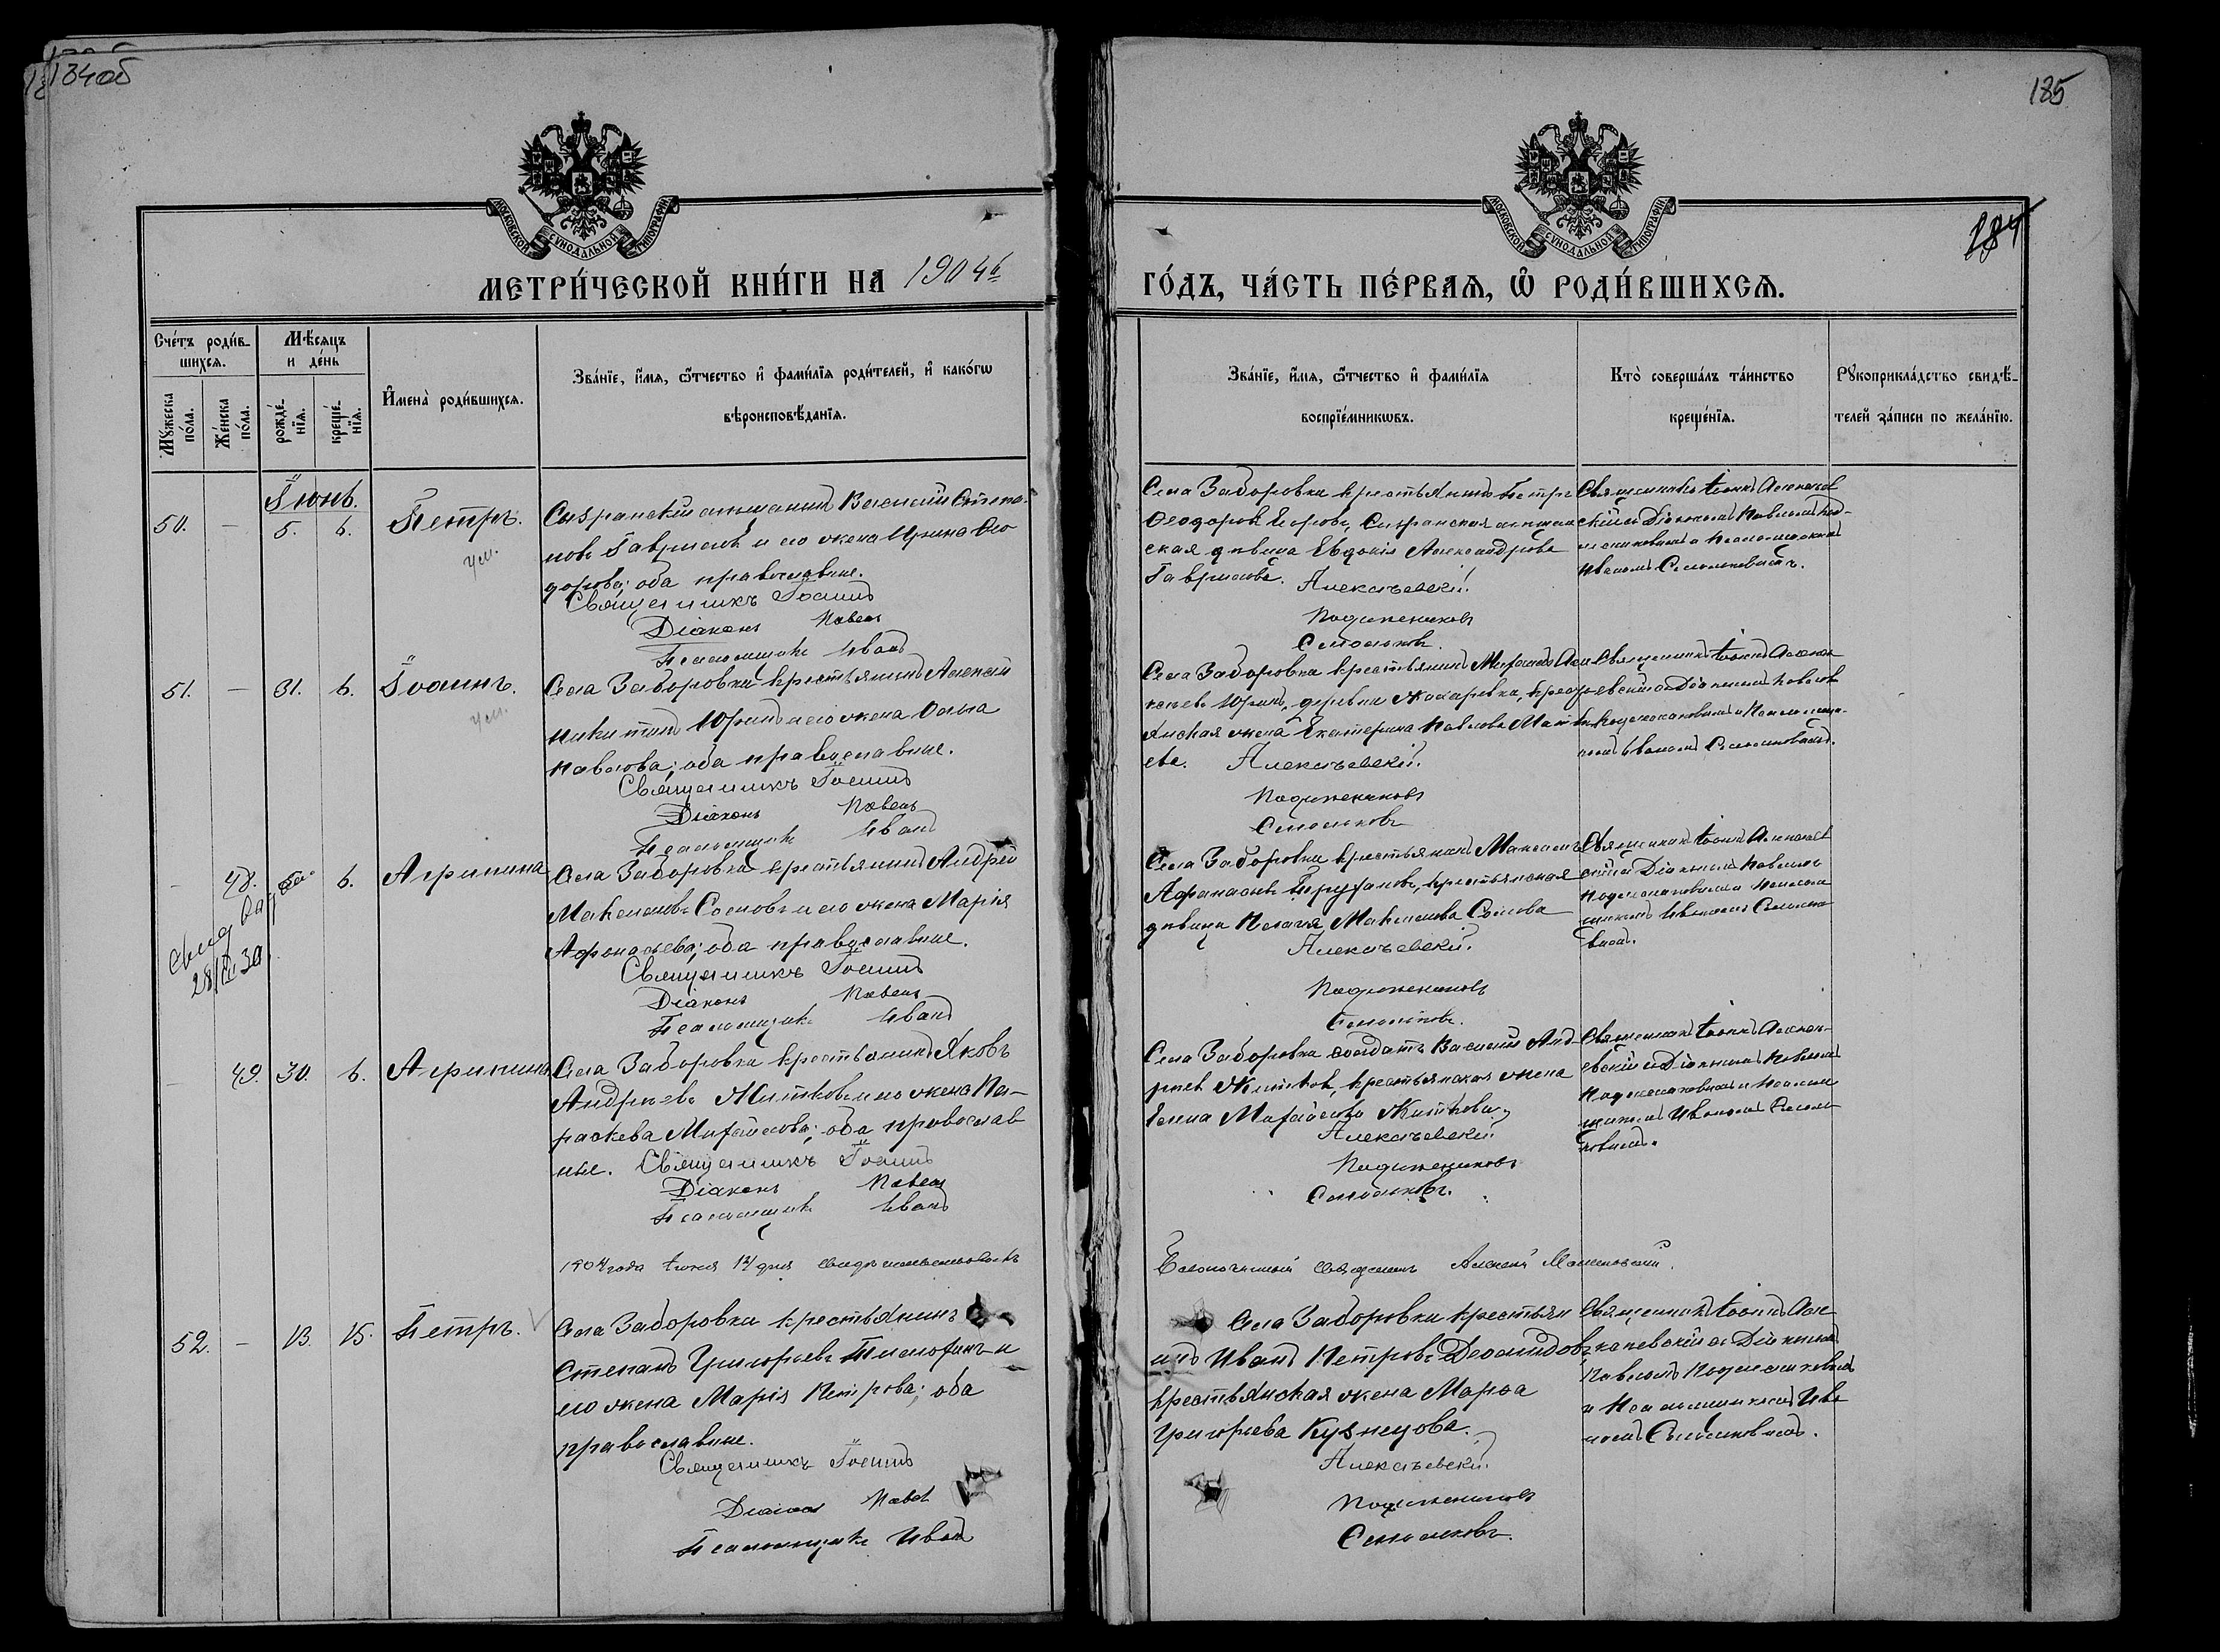 134об
185
184
МОСКОВСКОЙ СѴНОДАЛЬНОЙ ТИПОГРАФІИ
МОСКОВСКОЙ СѴНОДАЛЬНОЙ ТИПОГРАФІИ
МЕТРИ́ЧЕСКОЙ КНИ́ГИ НА 1904й
ГО́ДЪ, ЧА́СТЬ ПЕ́РВАѦ, Ѽ РОДИ́ВШИХСѦ.
Сче́тъ роди́в-
шихсѧ.
Мꙋ́жеска по́ла.
Же́нска по́ла.
Мѣ́сяцъ
и де́нь
рожде́-
нїѧ.
креще́-
нїѧ.
И҆мена̀ роди́вшихсѧ.
Зва́нїе, и҆́мѧ, ѻ҆́тчество и҆ фами́лїѧ роди́телей, и҆ како́гѡ
вѣроисповѣ́данїѧ.
Зва́нїе, и҆́мѧ, ѻ҆́тчество и҆ фами́лїѧ
воспрїе́мникѡвъ.
Кто̀ соверша́лъ та́инство
креще́нїѧ.
Рꙋкоприкла́дство свидѣ́-
телей за́писи по жела́нїю.
Іюнь.
50. — 5. 6. Петръ.
ум.
Сызранскій мѣщанинъ Василій Степа-
новъ Гавриловъ и его жена Ирина Ѳео
дорова; оба православные.
Священникъ Іоаннъ
Діаконъ Павелъ
Псаломщикъ Иванъ
Села Заборовки крестьянинъ Петръ
Ѳеодоровъ Егоровъ, Сызранская мѣщан
ская дѣвица Евдокія Александрова
Гаврилова.
Алексѣевскій.
Подлжениковъ
Смольковъ.
Священникъ Іоаннъ Алексѣев
скій съ Діакономъ Павломъ
и Псаломщикомъ
Иваномъ Смольковымъ.
51. — 31. 6. Іоаннъ.
ум.
Села Заборовки крестьянинъ Алексѣй
Никитинъ Юринъ и его жена Ольга
Павлова; оба православные.
Священникъ Іоаннъ
Діаконъ Павелъ
Псаломщикъ Иванъ
Села Заборовки крестьянинъ Михаилъ Але
ксѣевъ Юринъ, деревни Жихаревки, кресть
янская жена Екатерина Павлова Матвѣ
ева.
Алексѣевскій.
Смольковъ
Священникъ Іоаннъ Алексѣ
евскій съ Діакономъ Павломъ
и Псаломщи-
комъ Иваномъ Смольковымъ.
— 48. 6. Агрипина
Свид выд
28/III 30
Села Заборовки крестьянинъ Андрей
Максимовъ Сомовъ и его жена Марія
Афонасьева; оба православные.
Священникъ Іоаннъ
Діаконъ Павелъ
Псаломщикъ Иванъ
Села Заборовки крестьянинъ Максимъ
Афанасьевъ Труфановъ, крестьянская
дѣвица Пелагія Максимова Сомова
Алексѣевскій.
Смольковъ.
Священникъ Іоаннъ Алексѣев
скій съ Діакономъ Павломъ
и Псалом
щикомъ Иваномъ Смолько
вымъ.
— 49. 30. 6. Агрипина
Села Заборовки крестьянинъ Яковъ
Андреевъ Житковъ и его жена Па-
раскева Михайлова; оба православ
ные. Священникъ Іоаннъ
Діаконъ Павелъ
Псаломщикъ Иванъ
Села Заборовки солдатъ Василій Анд-
реевъ Житковъ, крестьянская жена
Елена Михайлова Житкова.
Алексѣевскій.
Смольковъ.
Священникъ Іоаннъ Алексѣ-
евскій съ Діакономъ Павломъ
и Псалом
щикомъ Иваномъ Смоль
ковымъ.
1904 года Іюня 14 дня свидѣтельствовалъ
Благочинный священникъ Алексѣй
52. — 13. 15. Петръ.
Села Заборовки крестьянинъ
Степанъ Григорьевъ Тимофинъ и
его жена Марія Петрова; оба
православные.
Священникъ Іоаннъ
Діаконъ Павелъ
Псаломщикъ Иванъ
Села Заборовки крестьян
инъ Иванъ Петровъ Деомидовъ,
крестьянская жена Марѳа
Григорьева Кузнецова.
Алексѣевскій.
Смольковъ.
Священникъ Іоаннъ Але
ксѣевскій съ Діакономъ
Павломъ
и Псаломщикомъ Ива
номъ Смольковымъ.